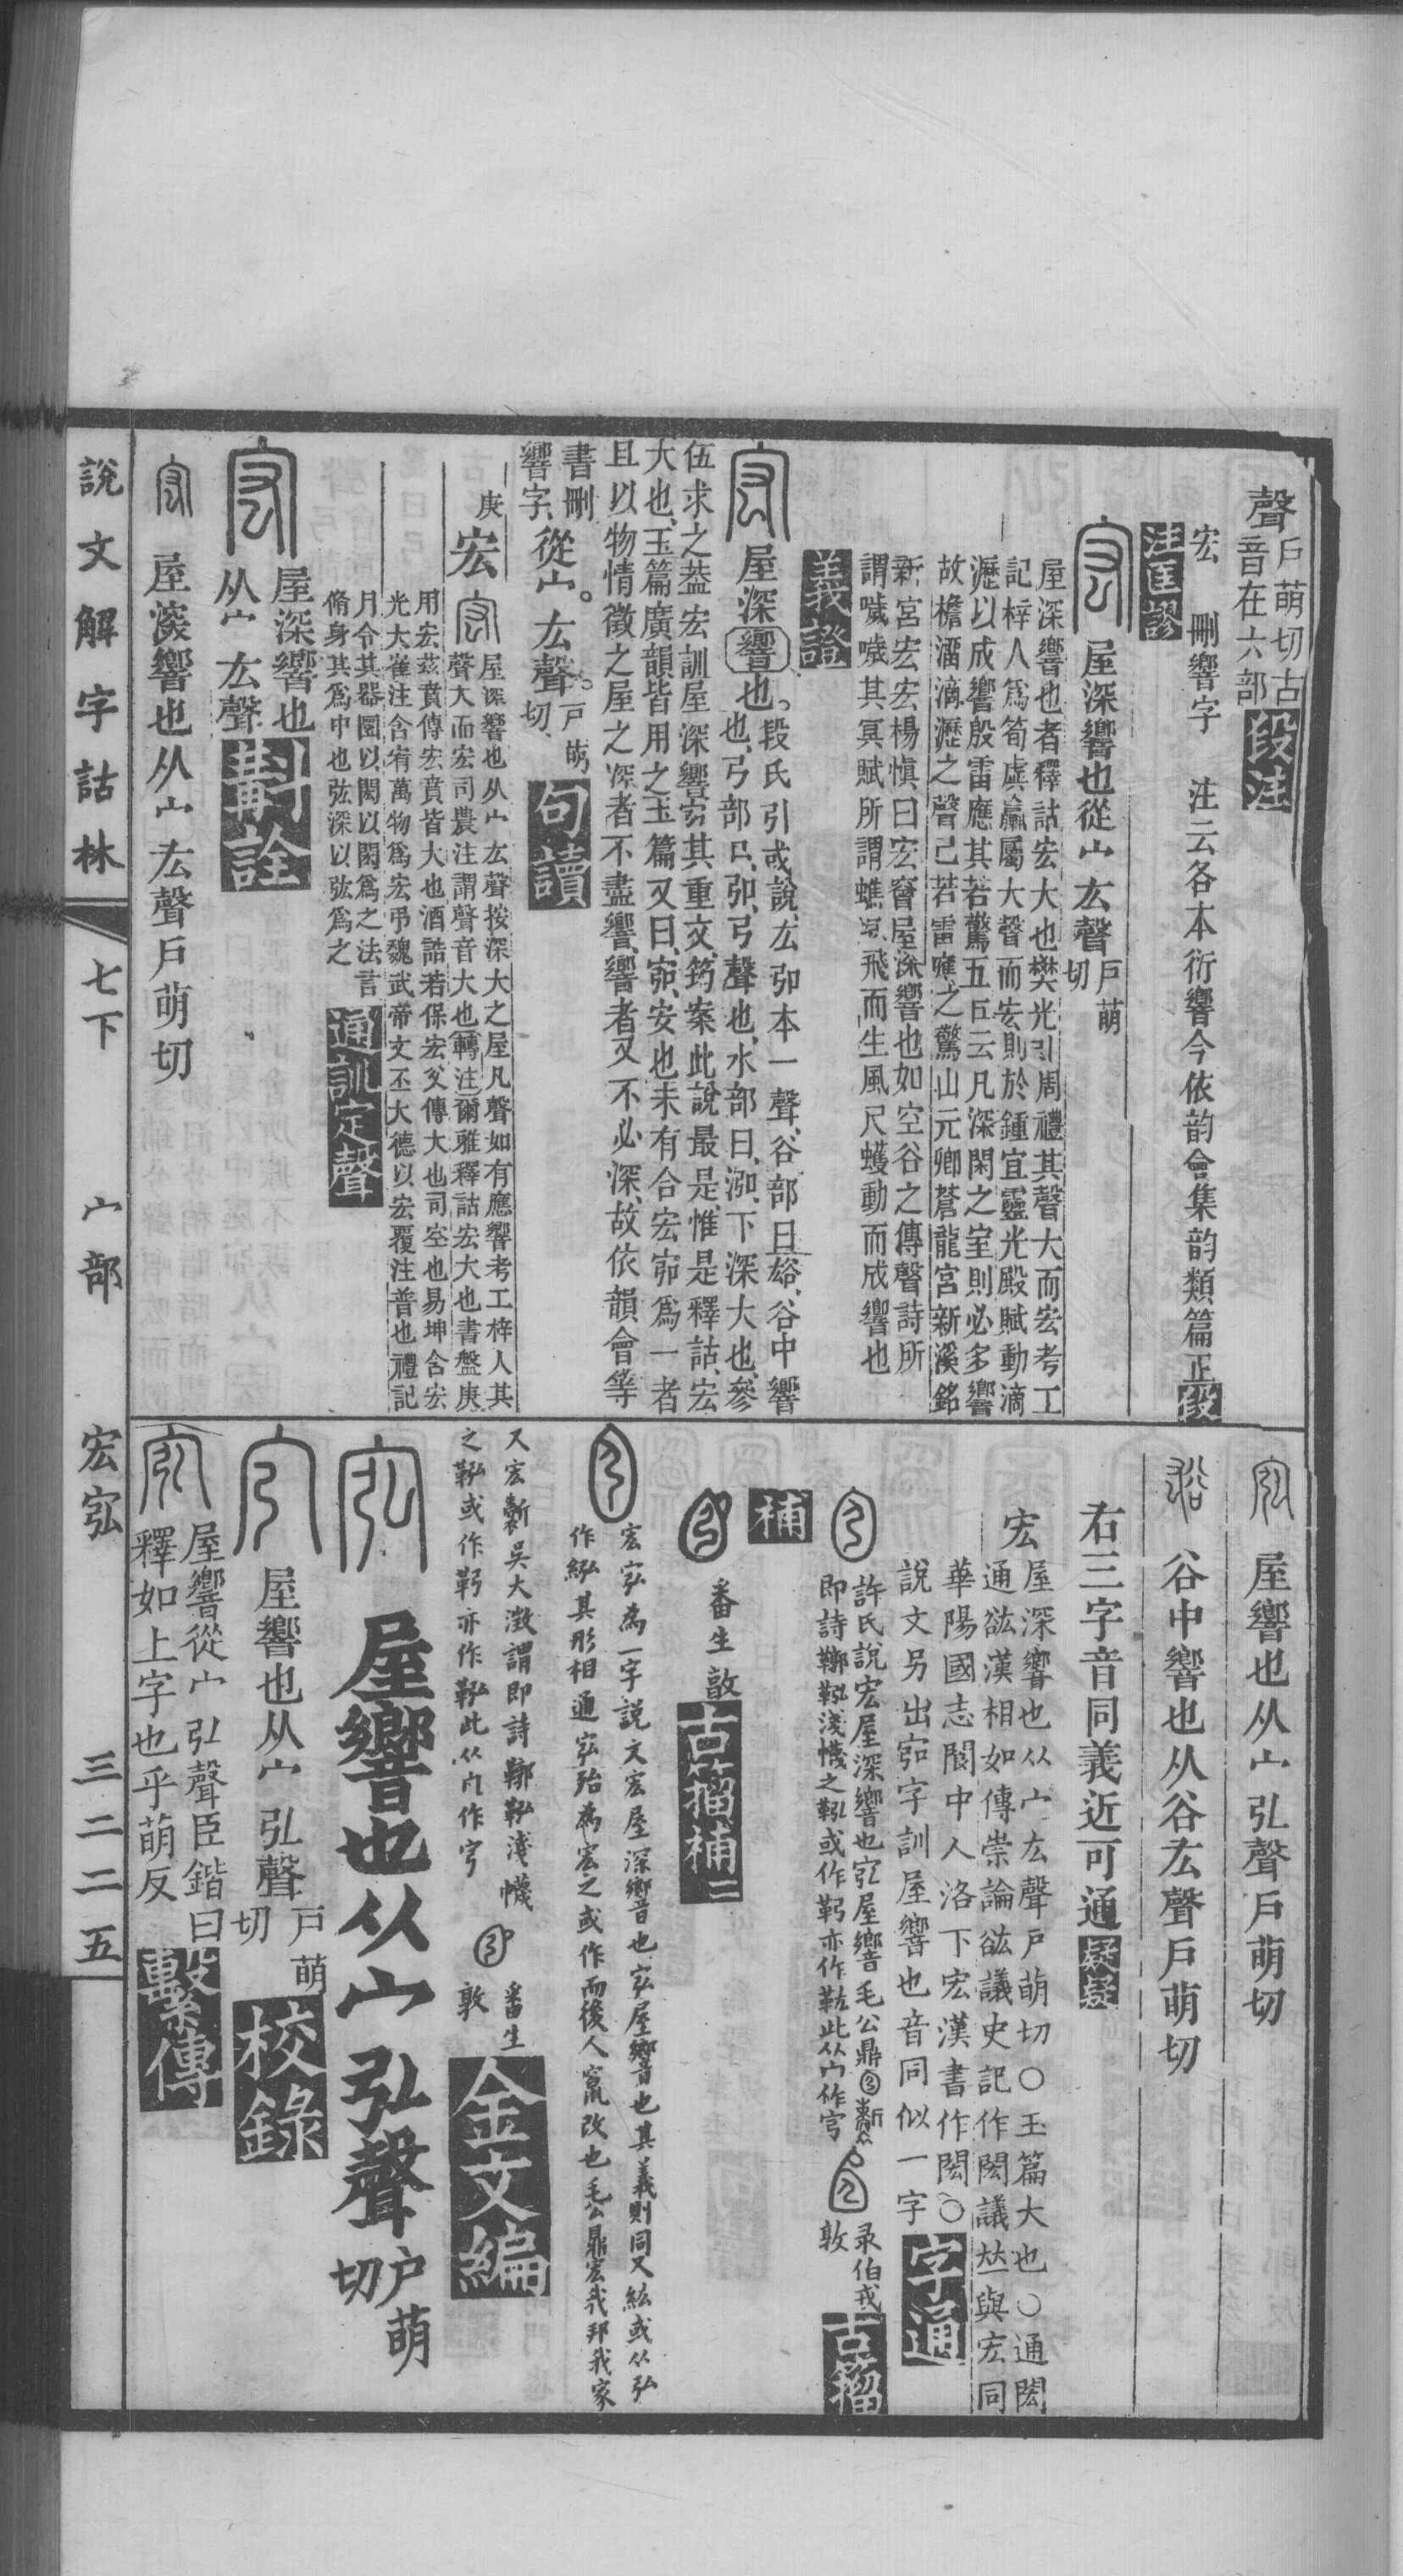 聲戶萌切古
音在六部
段注
宏 刪響字 注云各本衍響今依韵會集韵類篇正段
注匡謬
屋深響也從宀厷聲戶萌
切
屋深響也者釋詁宏大也樊光引周禮其聲大而宏考工
記梓人爲筍虡贏屬大聲而宏則於鍾宜靈光殿賦動滴
瀝以成響殷雷應其若驚五臣云凡深閑之室則必多響
故檐溜滴瀝之聲已若雷應之驚山元卿蒼龍宮新溪銘
新宮宏宏楊愼曰宏窅屋深響也如空谷之傳聲詩所
謂噦噦其冥賦所謂蟭
飛而生風尺蠖動而成響也
義證
屋深響也。段氏引或說厷弘本一聲、谷部曰䜪、谷中響
也、弓部曰、弘、弓聲也、水部曰、泓、下深大也、參
伍求之葢宏訓屋深響宖其重文、筠案此說最是、惟是釋詁、宏
大也、玉篇廣韻皆用之玉篇又曰、宖、安也未有合宏宖爲一者
且以物情徵之屋之深者不盡響、響者又不必深、故依韻會等
書刪
響字、從宀。厷聲。戶萌
切
句讀
庚
宏 屋深響也从宀厷聲按深大之屋凡聲如有應響考工梓人其
聲大而宏司農注謂聲音大也轉注爾雅釋詁宏大也書盤庚
用宏茲賁傳宏賁皆大也酒誥若保宏父傳大也司空也易坤含宏
光大崔注含宥萬物爲宏弔魏武帝文丕大德以宏覆注普也禮記
月令其器圜以閎以閎爲之法言
脩身其爲中也弦深以弦爲之
通訓定聲
屋深響也
从宀厷聲
斠詮
屋深響也从宀厷聲戶萌切
說文解字詁林 七下 宀部 宏宖 三二二五
屋響也从宀弘聲戶萌切
谷中響也从谷厷聲戶萌切
右三字音同義近可通疑疑
宏 屋深響也从宀厷聲戶萌切○玉篇大也○通閎
通谹漢相如傳崇論谹議史記作閎議竝與宏同
華陽國志閬中人洛下宏漢書作閎○
說文另出宖字訓屋響也音同似一字
字通
許氏說宏屋深響也宖屋響毛公鼎
即詩鞹鞃淺幭之鞃或作
亦作
此从宀作
彔伯戎
敦
古籀
補
番生
敦
古籀補二
宏宖為一字說文宏屋深響也宖屋響也其義則同又紘或从弘
作䋫其形相通宖殆為宏之或作而後人竄改也毛公鼎宏我邦我家
又宏
吳大澂謂即詩鞹鞃淺幭
之鞃或作
亦作
此从宀作
番生
敦
金文編
屋響也从宀弘聲戶萌
切
屋響也从宀弘聲戶萌
切
校錄
屋響從宀弘聲臣鍇曰
釋如上字也乎萌反
繫傳